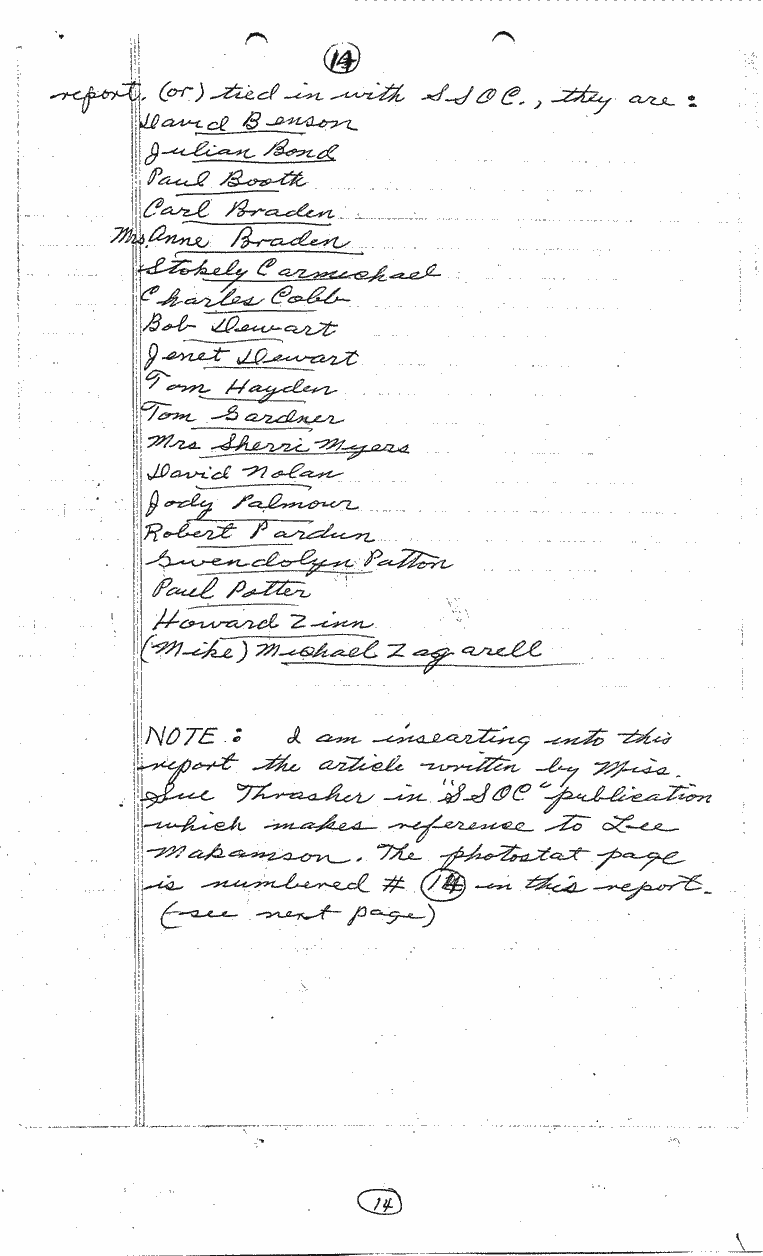 14
report. (or) tied in with SSOC., they are :
David Benson
Julian Bond
Paul Booth
Carl Braden
Mrs. Anne Braden
Stokely Carmichael
Charles Cobb
Bob Dewart
Jenet Dewart
Tom Hayden
Tom Gardner
Mrs Sherri Myers
David Nolan
Jody Palmour
Robert Pardun
Gwendolyn Patton
Paul Potter
Howard Zinn
(Mike) Michael Zagarell
NOTE : I am insearting into this
report the article written by Miss.
Sue Thrasher in "SSOC" publication
which makes reference to Lee
Makamson. The photostat page
is numbered # 14 in this report.
(see next page)
14